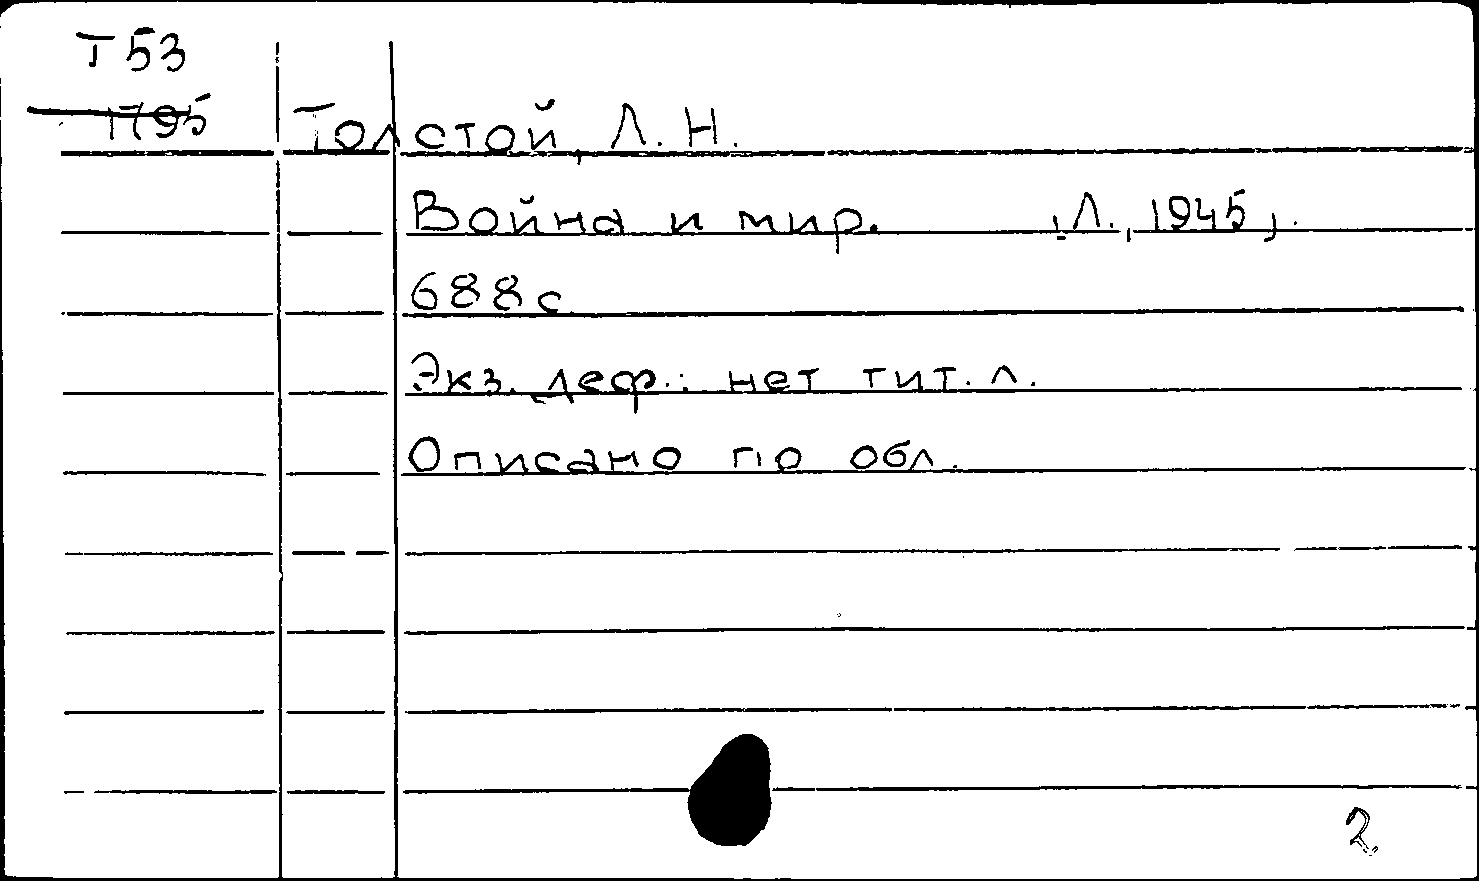 Т 53
1795
Толстой, Л. Н.
Война и мир. Л., 1945,
688 с
Экз. деф.: нет тит. л.
Описано по обл.
2